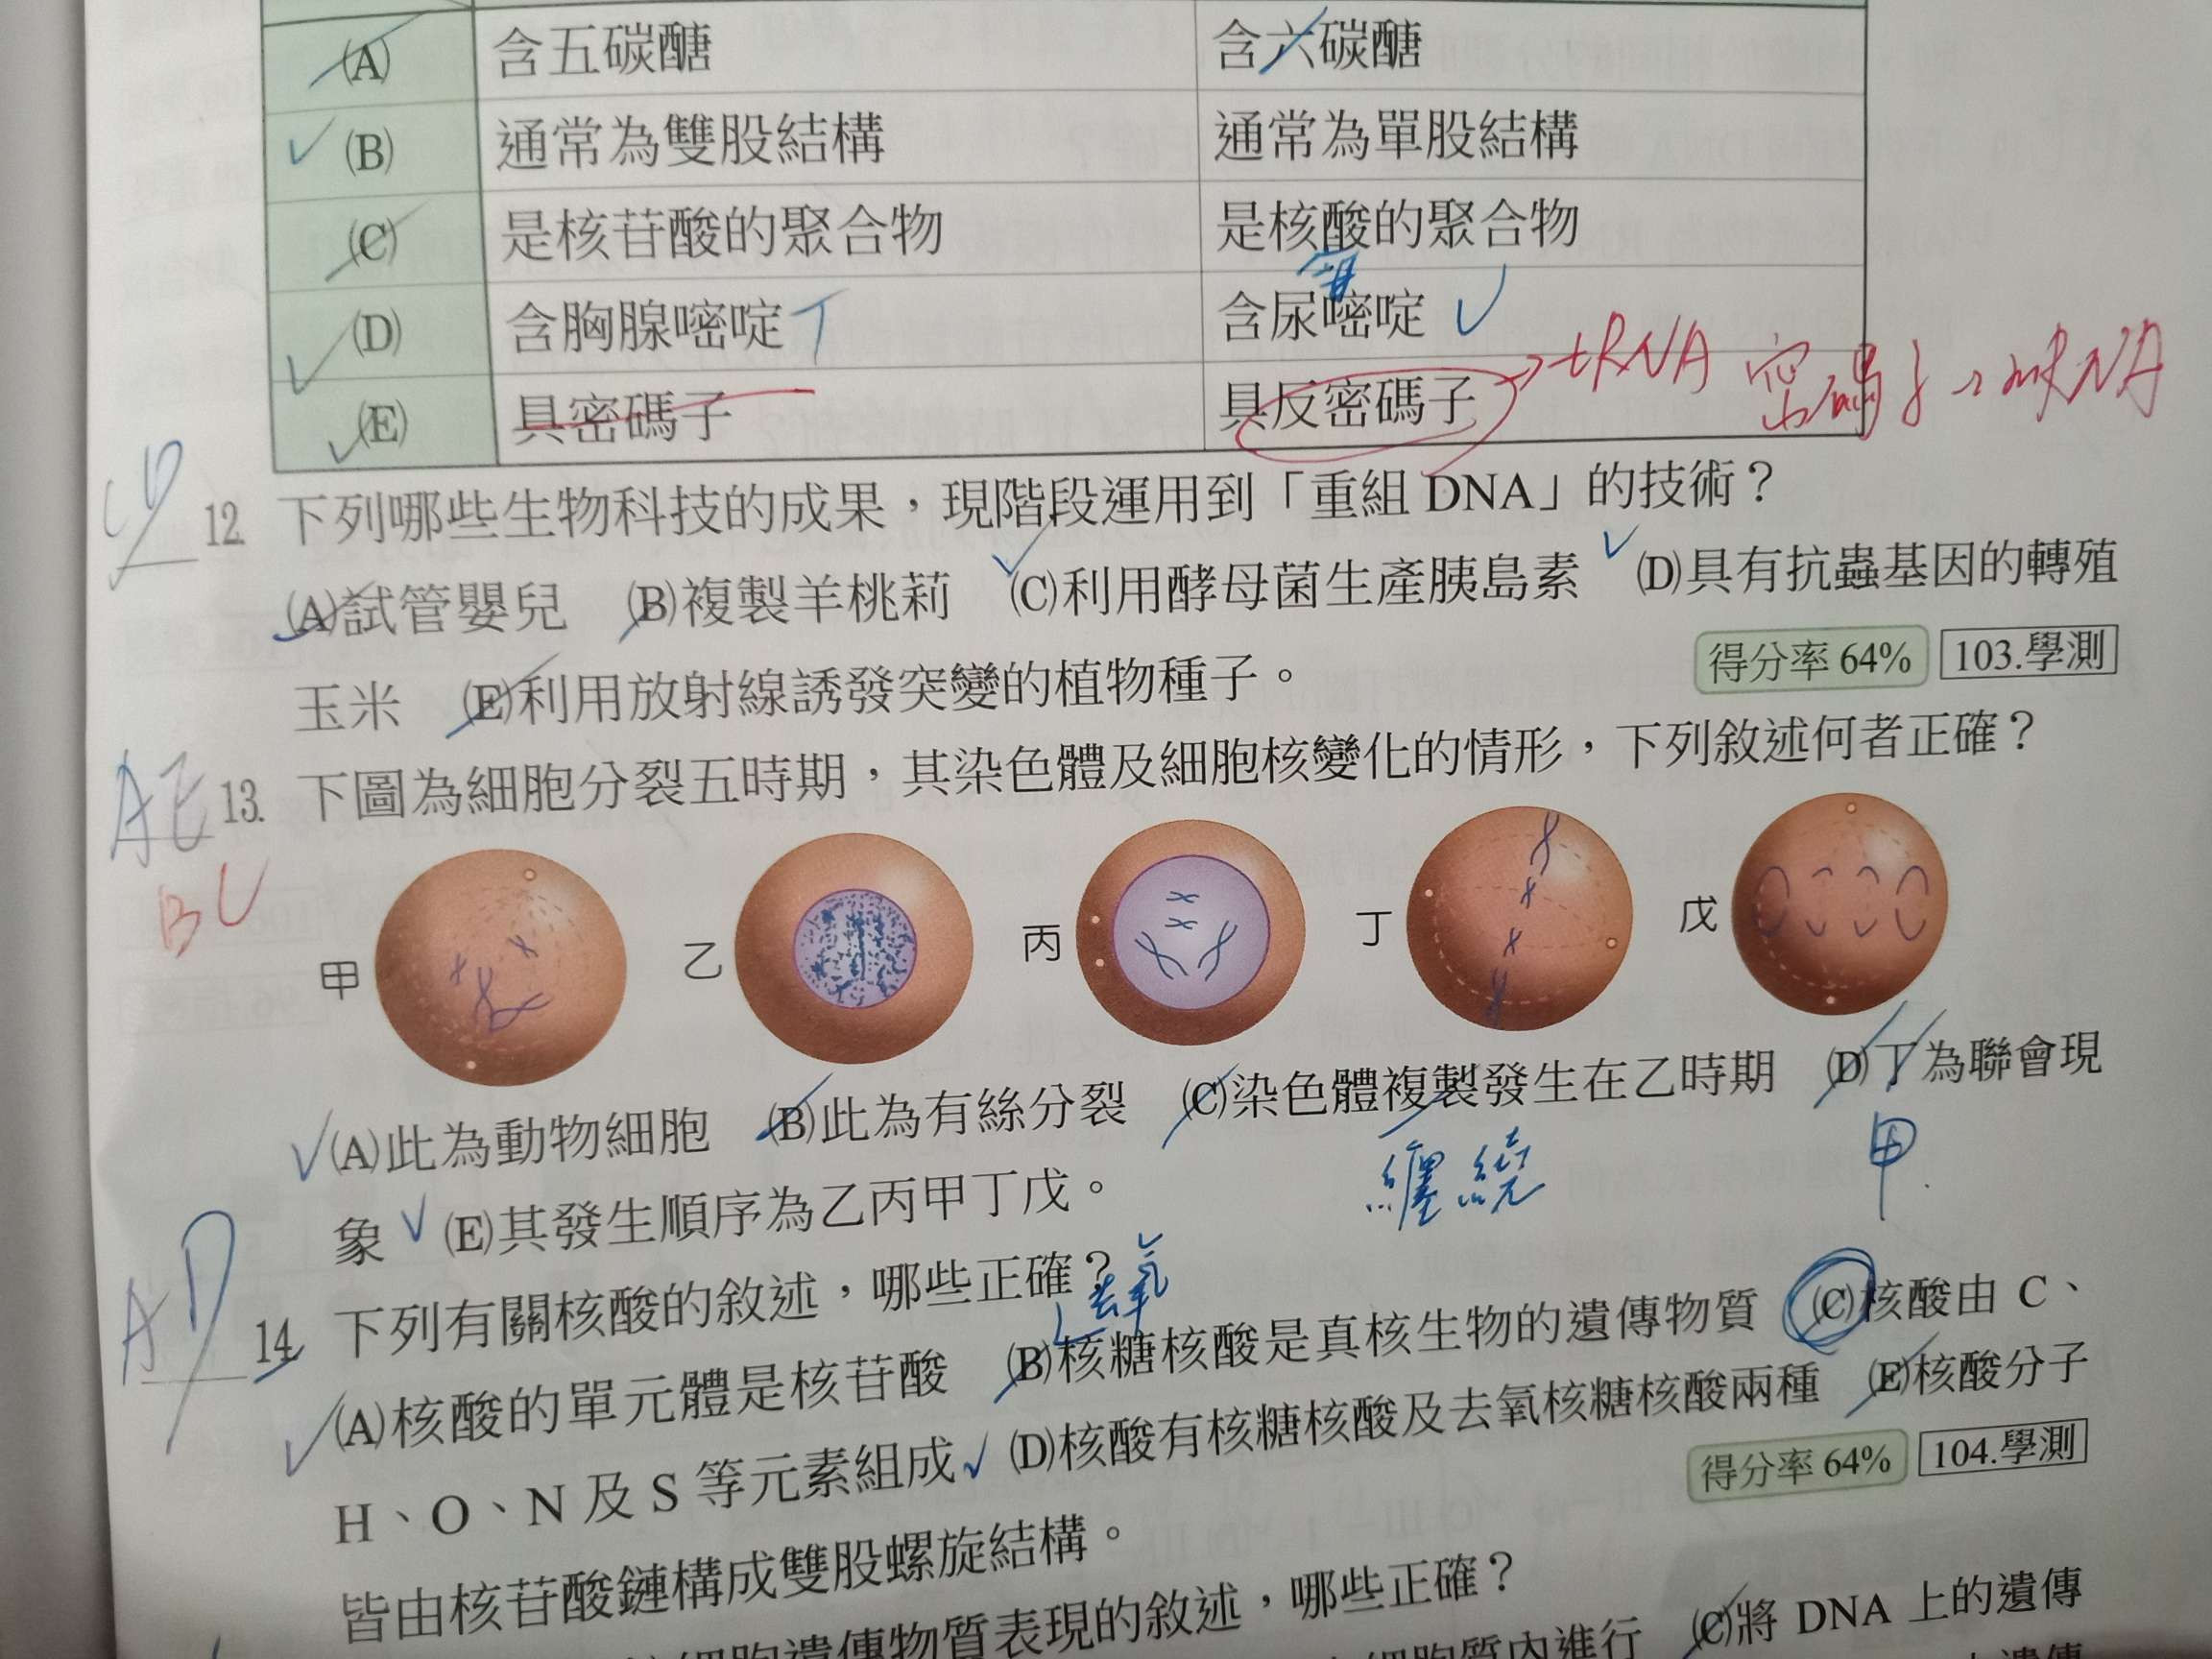 (A) 含五碳醣 含六碳醣
(B) 通常為雙股結構 通常為單股結構
(C) 是核苷酸的聚合物 是核酸的聚合物
苷
(D) 含胸腺嘧啶 T 含尿嘧啶
(E) 具密碼子 具反密碼子 →tRNA 密碼子→mRNA
CD 12. 下列哪些生物科技的成果，現階段運用到「重組 DNA」的技術？
(A)試管嬰兒 (B)複製羊桃莉 (C)利用酵母菌生產胰島素 (D)具有抗蟲基因的轉殖
玉米 (E)利用放射線誘發突變的植物種子。 得分率 64% 103.學測
AE 13. 下圖為細胞分裂五時期，其染色體及細胞核變化的情形，下列敘述何者正確？
BC
甲 乙 丙 丁 戊
(A)此為動物細胞 (B)此為有絲分裂 (C)染色體複製發生在乙時期 (D)丁為聯會現
纏繞 甲
象 (E)其發生順序為乙丙甲丁戊。
AD 14. 下列有關核酸的敘述，哪些正確？
去氧
(A)核酸的單元體是核苷酸 (B)核糖核酸是真核生物的遺傳物質 (C)核酸由 C、
H、O、N 及 S 等元素組成 (D)核酸有核糖核酸及去氧核糖核酸兩種 (E)核酸分子
皆由核苷酸鏈構成雙股螺旋結構。 得分率 64% 104.學測
細胞遺傳物質表現的敘述，哪些正確？
細胞質內進行 (C)將 DNA 上的遺傳